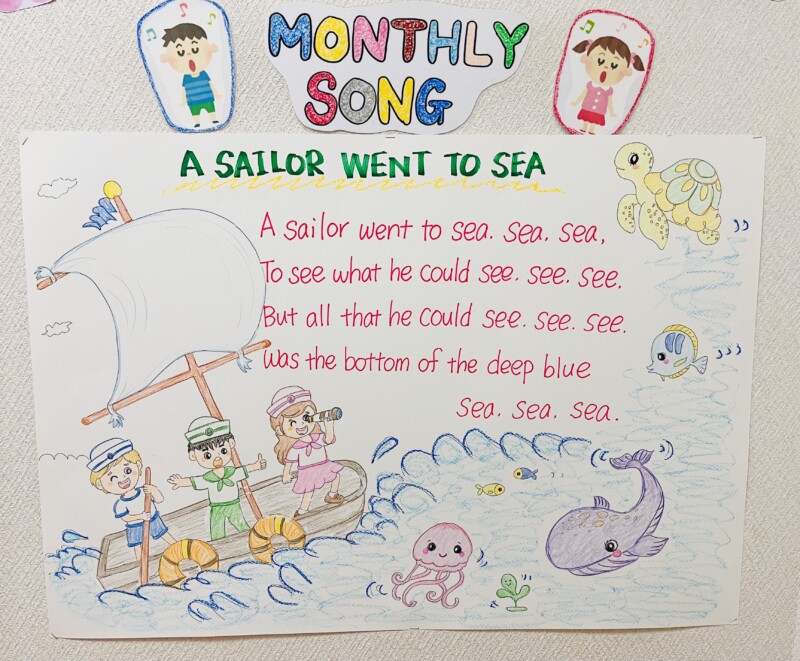 MONTHLY
SONG
A SAILOR WENT TO SEA
A sailor went to sea. sea. sea,
To see what he could see. see. see.
But all that he could see. see. see.
Was the bottom of the deep blue
sea. sea. sea.